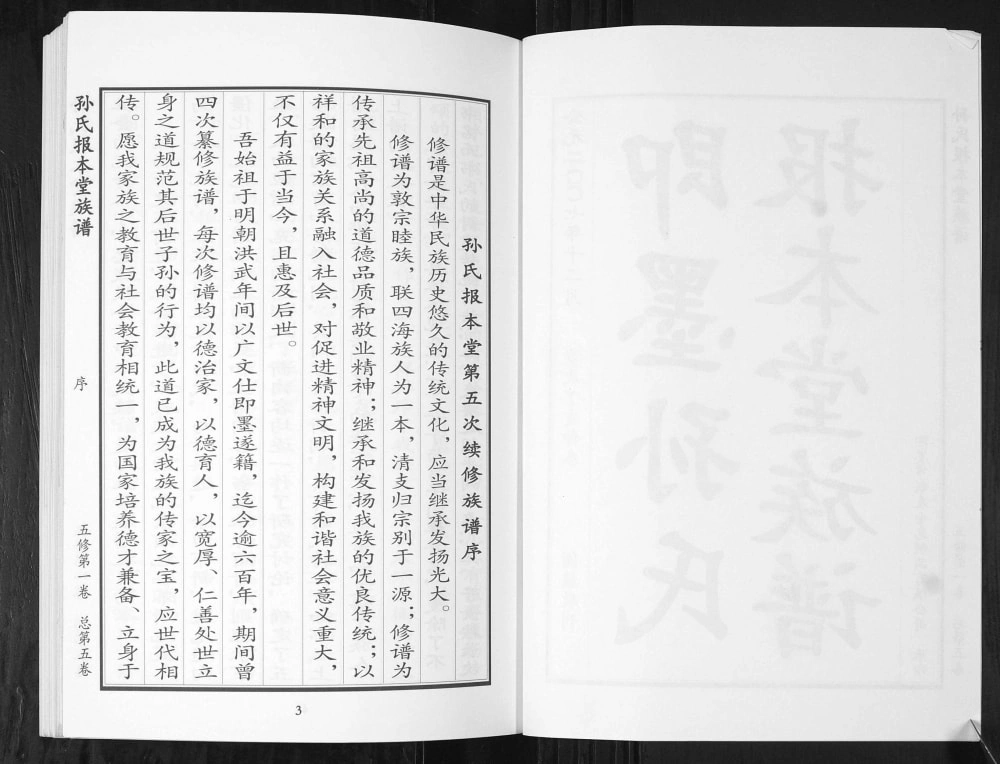 孙氏报本堂第五次续修族谱序
修谱是中华民族历史悠久的传统文化，应当继承发扬光大。
修谱为敦宗睦族，联四海族人为一本，清支归宗别于一源；修谱为
传承先祖高尚的道德品质和敬业精神；继承和发扬我族的优良传统；以
祥和的家族关系融入社会，对促进精神文明，构建和谐社会意义重大，
不仅有益于当今，且惠及后世。
吾始祖于明朝洪武年间以广文仕即墨遂籍，迄今逾六百年，期间曾
四次纂修族谱，每次修谱均以德治家，以德育人，以宽厚、仁善处世立
身之道规范其后世子孙的行为，此道已成为我族的传家之宝，应世代相
传。愿我家族之教育与社会教育相统一，为国家培养德才兼备、立身于
孙氏报本堂族谱
序
五修第一卷 总第五卷
3
即墨孙氏
报本堂族谱